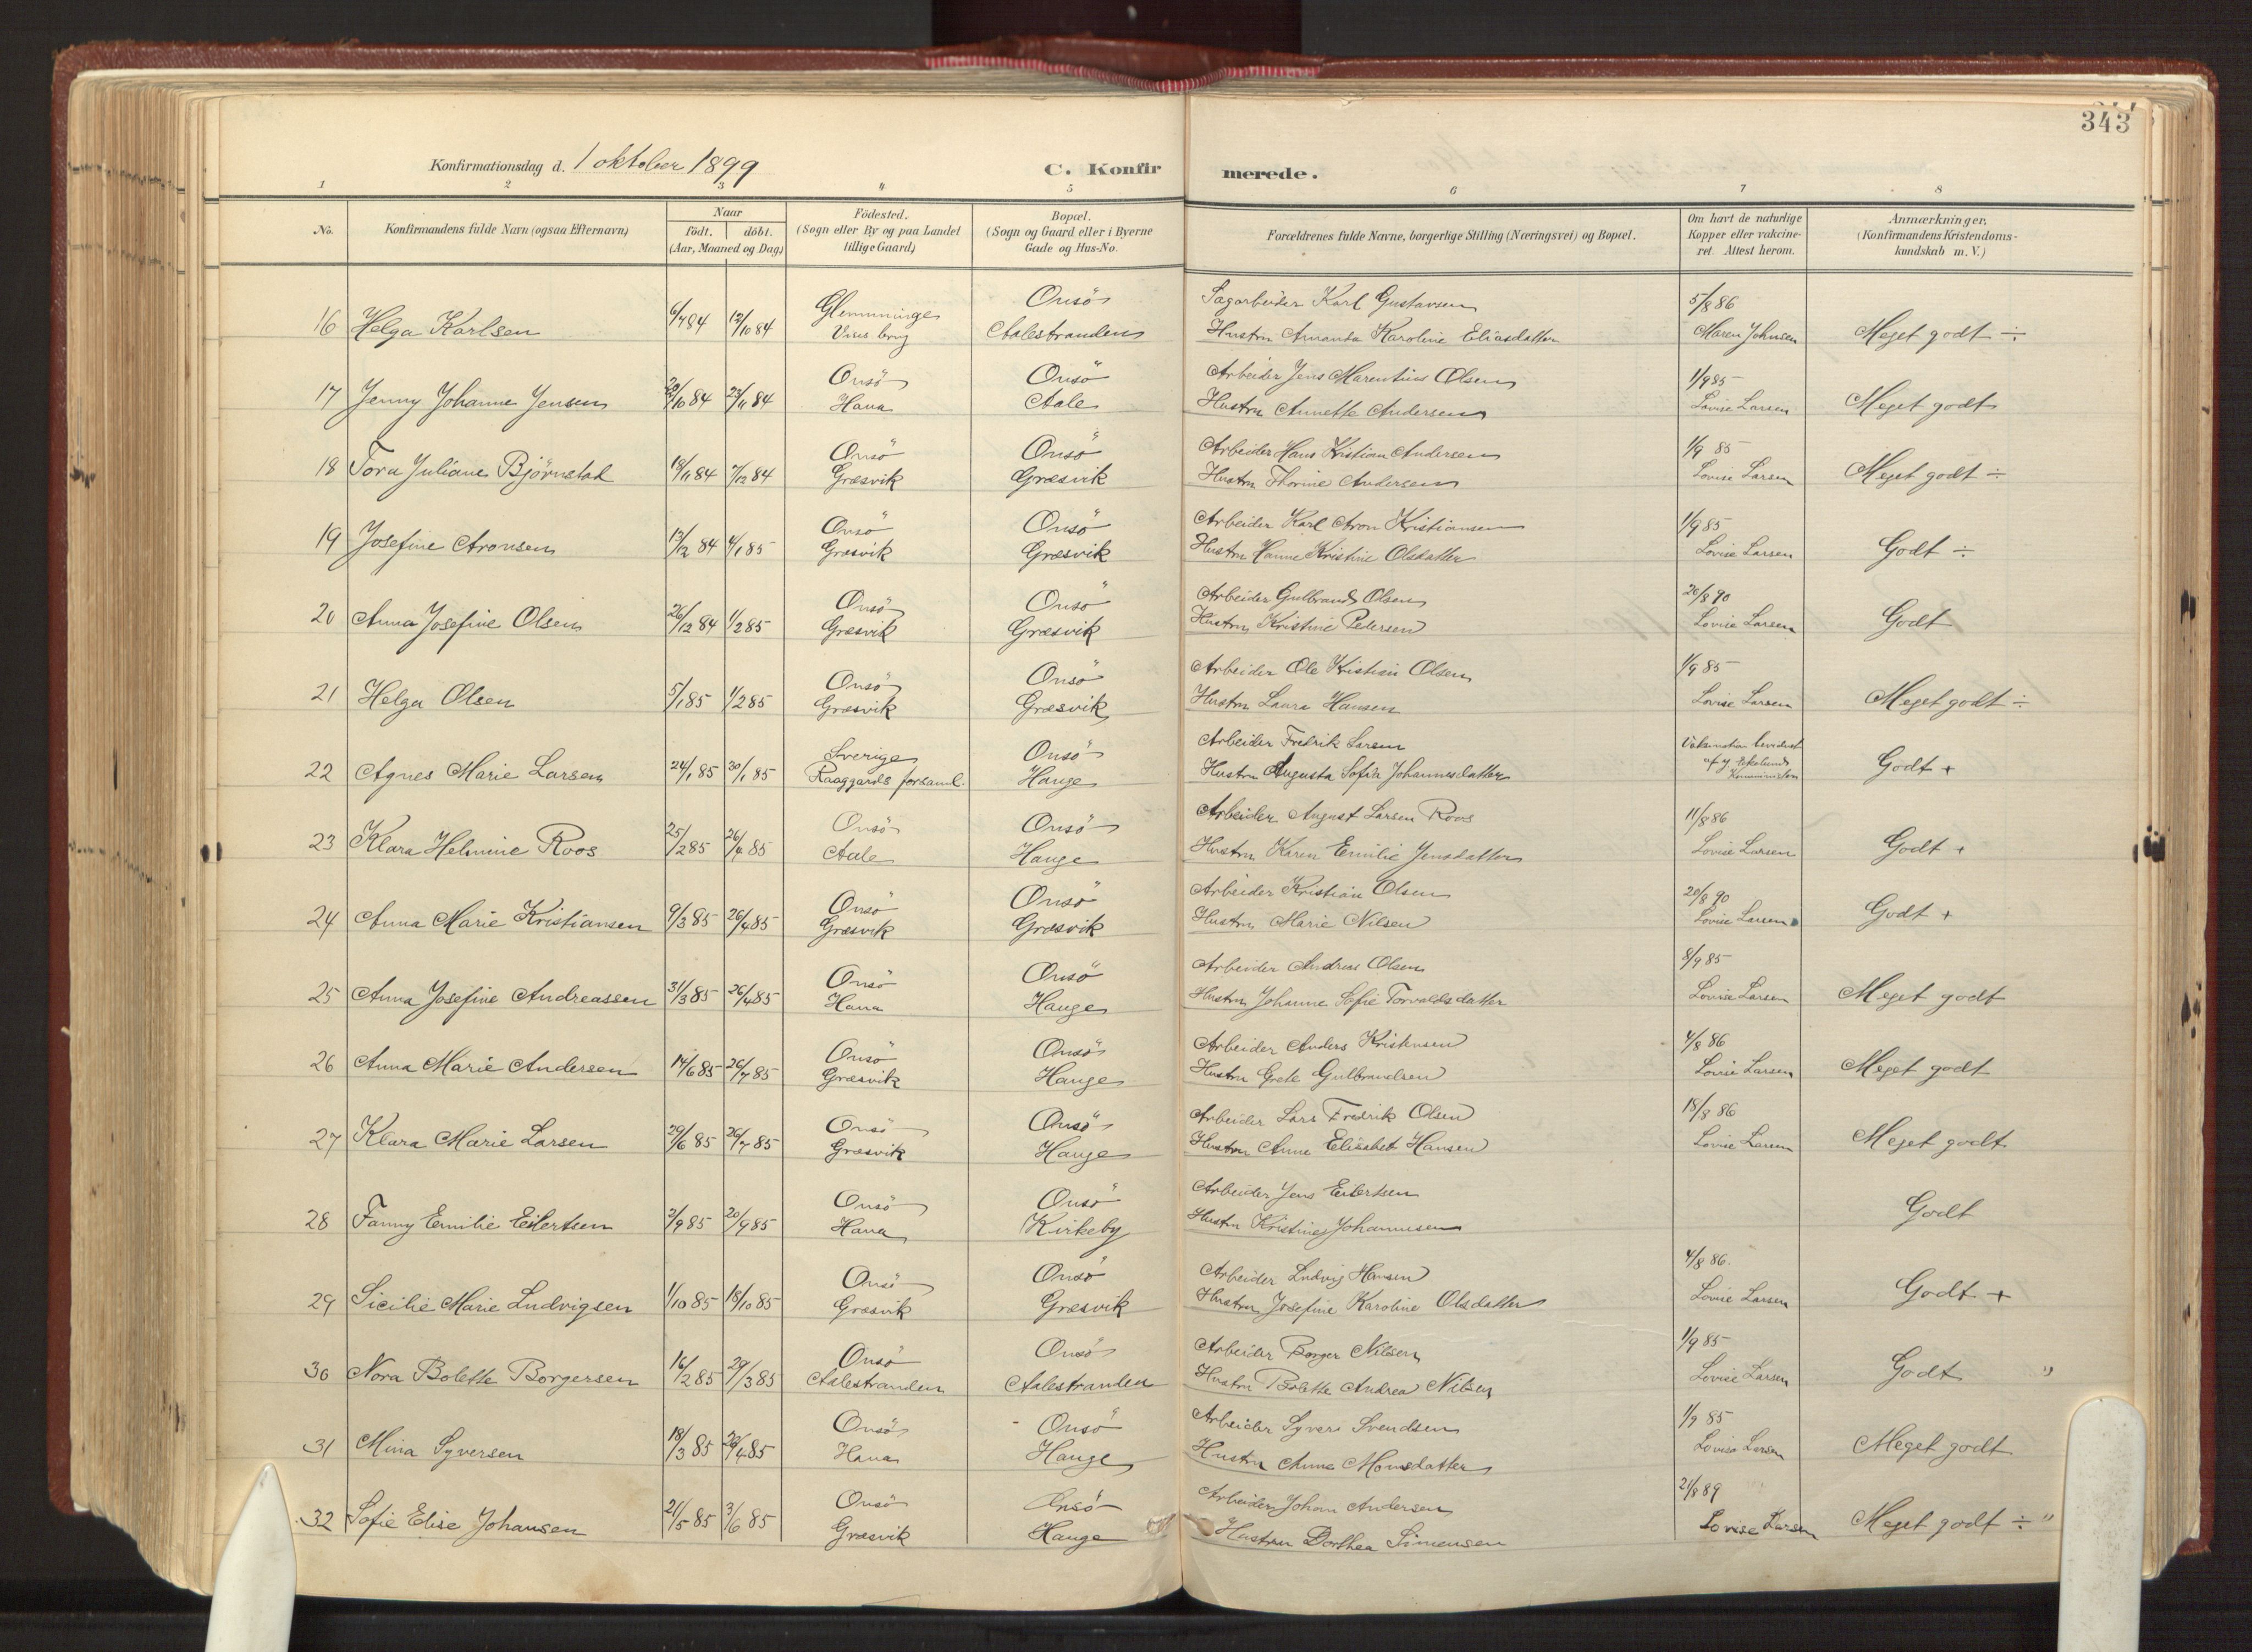 343
Konfirmationsdag d. 1 oktober 1899
C. Konfirmerede.
1 2 3 4 5 6 7 8
No. Konfirmandens fulde Navn (ogsaa Efternavn) Naar født. døbt. (Aar, Maaned og Dag) Fødested. (Sogn eller By og paa Landet tillige Gaard) Bopæl. (Sogn og Gaard eller i Byerne Gade og Hus-No. Forældrenes fulde Navne, borgerlige Stilling (Næringsvei) og Bopæl. Om havt de naturlige Kopper eller vakcineret. Attest herom. Anmærkninger. (Konfirmandens Kristendomskundskab m. V.)
Glemminge Onsö Sagarbeider Karl Gustavsen 5/8 86
16 Helga Karlsen 6/7 84 12/10 84 Visis brug Aalestranden Hustru Amanda Karoline Eliasdatter Maren Johnsen Meget godt ÷
Onsö Onsö Arbeider Jens Marentius Olsen 1/9 85
17 Jenny Johanne Jensen 20/10 84 23/11 84 Hana Aale Hustru Annette Andersen Lovise Larsen Meget godt
Onsö Onsö Arbeider Hans Kristian Andersen 1/9 85
18 Tora Juliane Björnstad 18/11 84 7/12 84 Græsvik Græsvik Hustru Thorine Andersen Lovise Larsen Meget godt ÷
Onsö Onsö Arbeider Karl Aron Kristiansen 1/9 85
19 Josefine Aronsen 13/12 84 4/1 85 Græsvik Græsvik Hustru Hanne Kristine Olsdatter Lovise Larsen Godt ÷
Onsö Onsö Arbeider Gulbrand Olsen 20/8 90
20 Anna Josefine Olsen 26/12 84 1/2 85 Græsvik Græsvik Hustru Kristine Pedersen Lovise Larsen Godt
Onsö Onsö Arbeider Ole Kristian Olsen 1/9 85
21 Helga Olsen 5/1 85 1/2 85 Græsvik Græsvik Hustru Laura Hansen Lovise Larsen Meget godt ÷
Sverige Onsö Arbeider Fredrik Larsen
22 Agnes Marie Larsen 24/1 85 30/1 85 Raaggards forsaml. Hauge Hustru Augusta Sofia Johannesdatter Godt +
Onsö Onsö Arbeider August Larsen Roos 11/8 86
23 Klara Helmine Roos 25/2 85 26/4 85 Aale Hauge Hustru Karen Emilie Jensdatter Lovise Larsen Godt +
Onsö Onsö Arbeider Kristian Olsen 20/8 90
24 Anna Marie Kristiansen 9/3 85 26/4 85 Græsvik Græsvik Hustru Marie Nilsen Lovise Larsen Godt +
Onsö Onsö Arbeider Andreas Olsen 8/9 85
25 Anna Josefine Andreassen 31/3 85 26/4 85 Hana Hauge Hustru Johanne Sofie Torvaldsdatter Lovise Larsen Meget godt
Onsö Onsö Arbeider Anders Kristensen 4/8 86
26 Anna Marie Andersen 14/6 85 26/7 85 Græsvik Hauge Hustru Grete Gulbrandsen Lovise Larsen Meget godt
Onsö Onsö Arbeider Lars Fredrik Olsen 18/8 86
27 Klara Marie Larsen 29/6 85 26/7 85 Græsvik Hauge Hustru Anne Elisabet Hansen Lovise Larsen Meget godt
Onsö Onsö Arbeider Jens Eilertsen
28 Fanny Emilie Eilertsen 2/9 85 20/9 85 Hana Kirkeby Hustru Kristine Johannesen Godt
Onsö Onsö Arbeider Ludvig Hansen 4/8 86.
29 Sicilie Marie Ludvigsen 1/10 85 18/10 85 Græsvik Græsvik Hustru Josefine Karoline Olsdatter Lovise Larsen Godt +
Onsö Onsö Arbeider Borger Nilsen 1/9 85
30 Nora Bolette Borgersen 16/2 85 29/3 85 Aalestranden Aalestranden Hustru Bolette Andrea Nilsen Lovise Larsen Godt "
Onsö Onsö Arbeider Syver Svendsen 1/9 85
31 Mina Syversen 18/3 85 26/4 85 Hana Hauge Hustru Anne Monsdatter Lovise Larsen Meget godt
Onsö Onsö Arbeider Johan Andersen 21/8 89
32 Sofie Elise Johansen 21/5 85 3/6 85 Græsvik Hauge Hustru Dorthea Simensen Lovise Larsen Meget godt ÷ "